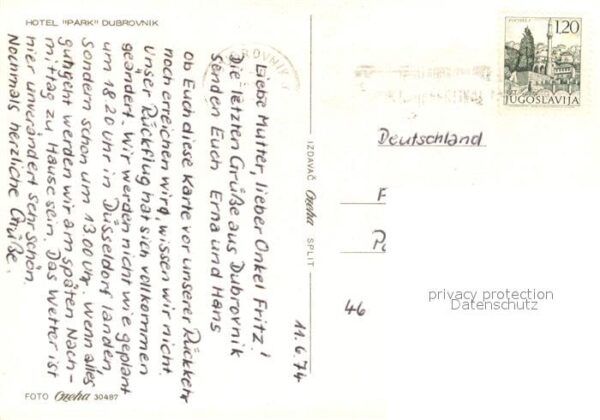 HOTEL "PARK" DUBROVNIK
Liebe Mutter, lieber Onkel Fritz!
Die letzten Grüße aus Dubrovnik
senden Euch Erna und Hans
Ob Euch diese Karte vor unserer Rückkehr
noch erreichen wird, wissen wir nicht.
Unser Rückflug hat sich vollkommen
geändert. Wir werden nicht wie geplant
um 18.20 Uhr in Düsseldorf landen,
Sondern schon um 13.00 Uhr. Wenn alles
gutgeht werden wir am späten Nach-
mittag zu Hause sein. Das Wetter ist
hier unverändert sehr schön.
Nochmals herzliche Grüße.
11.6.74
FOTO Ozeha 30487
IZDAVAČ Ozeha SPLIT
1,20
JUGOSLAVIJA
Deutschland
F
46
privacy protection
Datenschutz